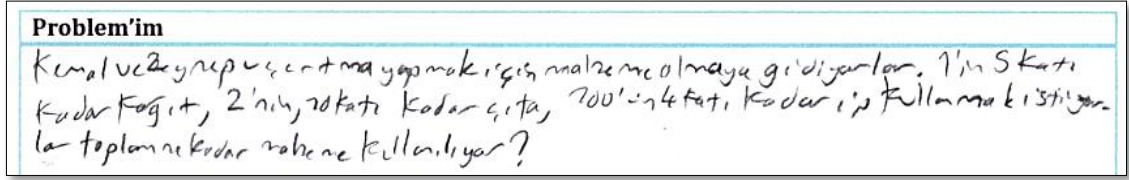 Problem'im
Kemal ve Zeynep uçurtma yapmak için malzeme almaya gidiyorlar. 1'in 5 katı
kadar kağıt, 2'nin, 10 katı kadar çıta, 100'ün 4 katı kadar ip kullanmak istiyor-
lar toplam ne kadar malzeme kullanılıyor?